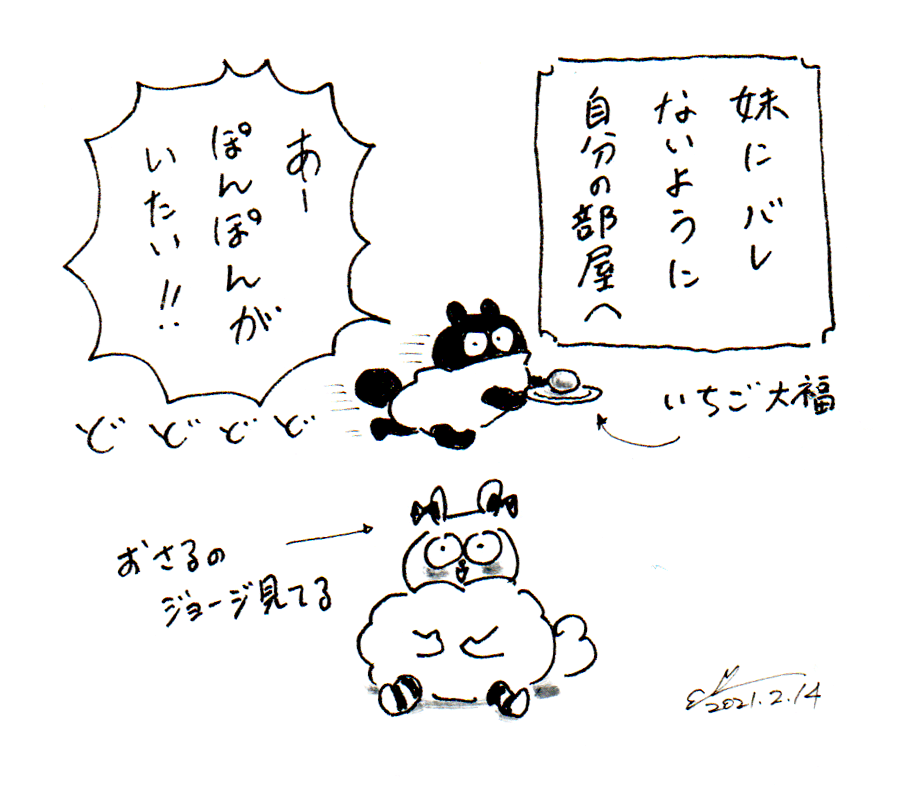 妹にバレ
ないように
自分の部屋へ
あー
ぽんぽんが
いたい!!
いちご大福
どどどど
おさるの
ジョージ見てる
2021.2.14